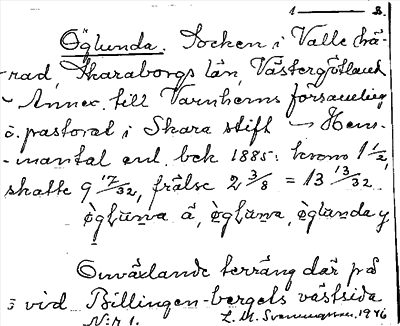 1 — 2.
Öglunda. Socken i Valle hä-
rad, Skaraborgs län, Västergötland
Annex till Varnhems församling
o. pastorat i Skara stift — Hem-
mantal enl. bok 1885: krono 1 1/2,
skatte 9 17/32, frälse 2 3/8 = 13 13/32
ògluna å, ògluna, òglunda y
Omväxlande terräng där på
vid Billingen-bergets västsida
N:r 1. L. M. Svenungsson 1946